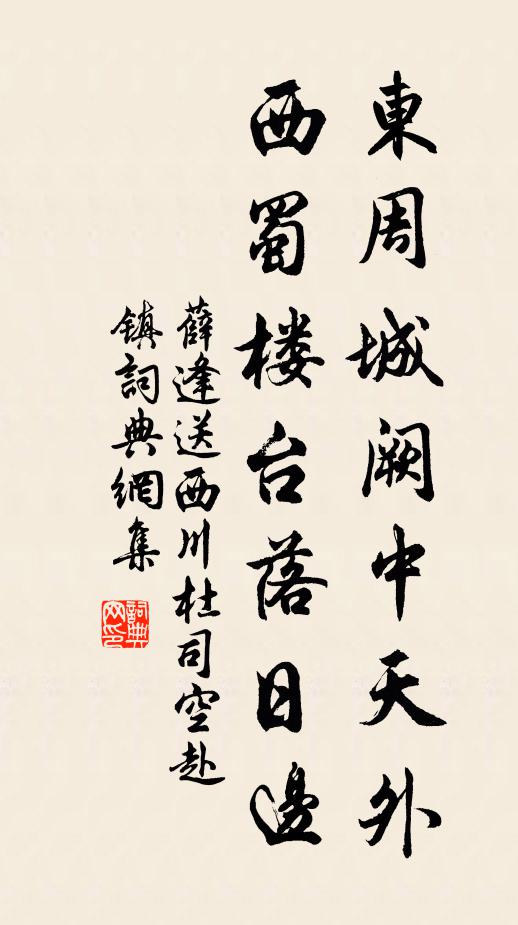 東周城阙中天外
西蜀楼台落日邊
薛逢送西川杜司空赴
镇詞典網集
詞典网印